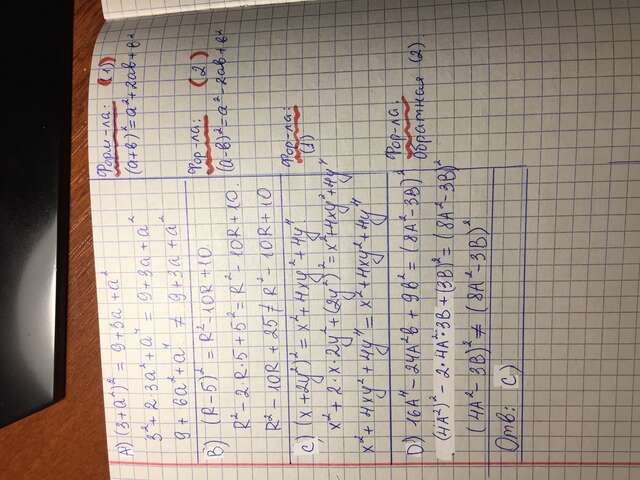 A) (3+a²)² = 9+3a+a²
3²+2·3a²+a⁴ = 9+3a+a²
9+6a²+a⁴ ≠ 9+3a+a²
Форм-ла: (1)
(a+в)²=a²+2aв+в²
B) (R-5)² = R²-10R+10
R²-2·R·5+5²= R²-10R+10.
R²-10R+25 ≠ R²-10R+10
Фор-ла: (2)
(a-в)²=a²-2aв+в²
C) (x+2y²)² = x²+4xy²+4y⁴
x²+2·x·2y²+(2y²)²=x²+4xy²+4y⁴
x²+4xy²+4y⁴=x²+4xy²+4y⁴
Фор-ла:
(1)
D) 16A⁴-24A²в+9в²=(8A²-3В)²
(4A²)²-2·4A²·3В+(3В)²=(8A²-3В)²
(4A²-3В)²≠(8A²-3В)²
Фор-ла:
обратная (2).
Отв: C)